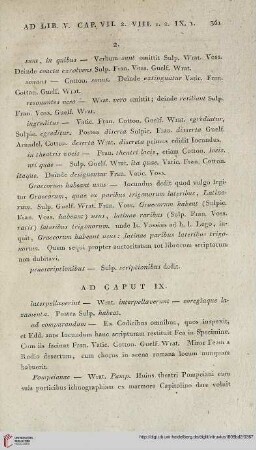 AD LIB. V. CAP. VII. 2. VIII. 1. 2. IX. 1. 361
2.
sunt, in quibus — Verbum sunt omittit Sulp. Wrat. Voss.
Deinde exacta excutiunt Sulp. Fran. Voss. Guelf. Wrat.
sonans — Cotton. sonat. Deinde extinguatur Vatic. Fran.
Cotton. Guelf. Wrat.
resonantes nocti — Wrat. vero omittit; deinde resiliunt Sulp.
Fran. Voss. Guelf. Wrat.
ingreditur — Vatic. Fran. Cotton. Guelf. Wrat. egrediatur,
Sulpic. egreditur. Postea diserta Sulpic. Fran. diserta Guelf.
Arundel. Cotton. deserta Wrat. discreta primus edidit Iocundus.
in theatris vocis — Fran. theatri
uti quae — Sulp. Guelf. Wrat. ita quae. Vatic. Fran. Cotton.
itaque. Deinde designantur Fran. Vatic. Voss.
Graecorum habeant usus — Iocundus dedit quod vulgo legitur
Graecorum, quae ex paribus trigonorum lateribus, Latinorum
Sulp. Guelf. Wrat. Fran. Voss. Graecorum habent (Sulpic.
Fran. Voss. habeant) usus, latinae paribus (Sulp. Fran. Voss.
varis) lateribus trigonorum. unde Is. Vossius ad h. l. Lege, inquit,
Graecorum habeant usus: latinae paribus lateribus trigonorum.
Quem sequi propter auctoritatem tot librorum scriptorum
non dubitavi.
praescriptionibus — Sulp. scriptionibus dedit.
AD CAPUT IX.
interpellaverint — Wrat. interpellaverunt — coregiaque laxamenta.
Postea Sulp. habeat.
ad comparandum — Ex Codicibus omnibus, quos inspexit,
et Edd. ante Iocundum hanc scripturam restituit Fea in Specimine.
Cum iis faciunt Fran. Vatic. Cotton. Guelf. Wrat.
Rodio dissertum, cum chorus in scena romana locum nunquam
habuerit.
Pompeianae — Wrat. Pomp. Huius theatri Pompeiani cum
vela porticibus ichnographiam ex marmore Capitolino dare voluit